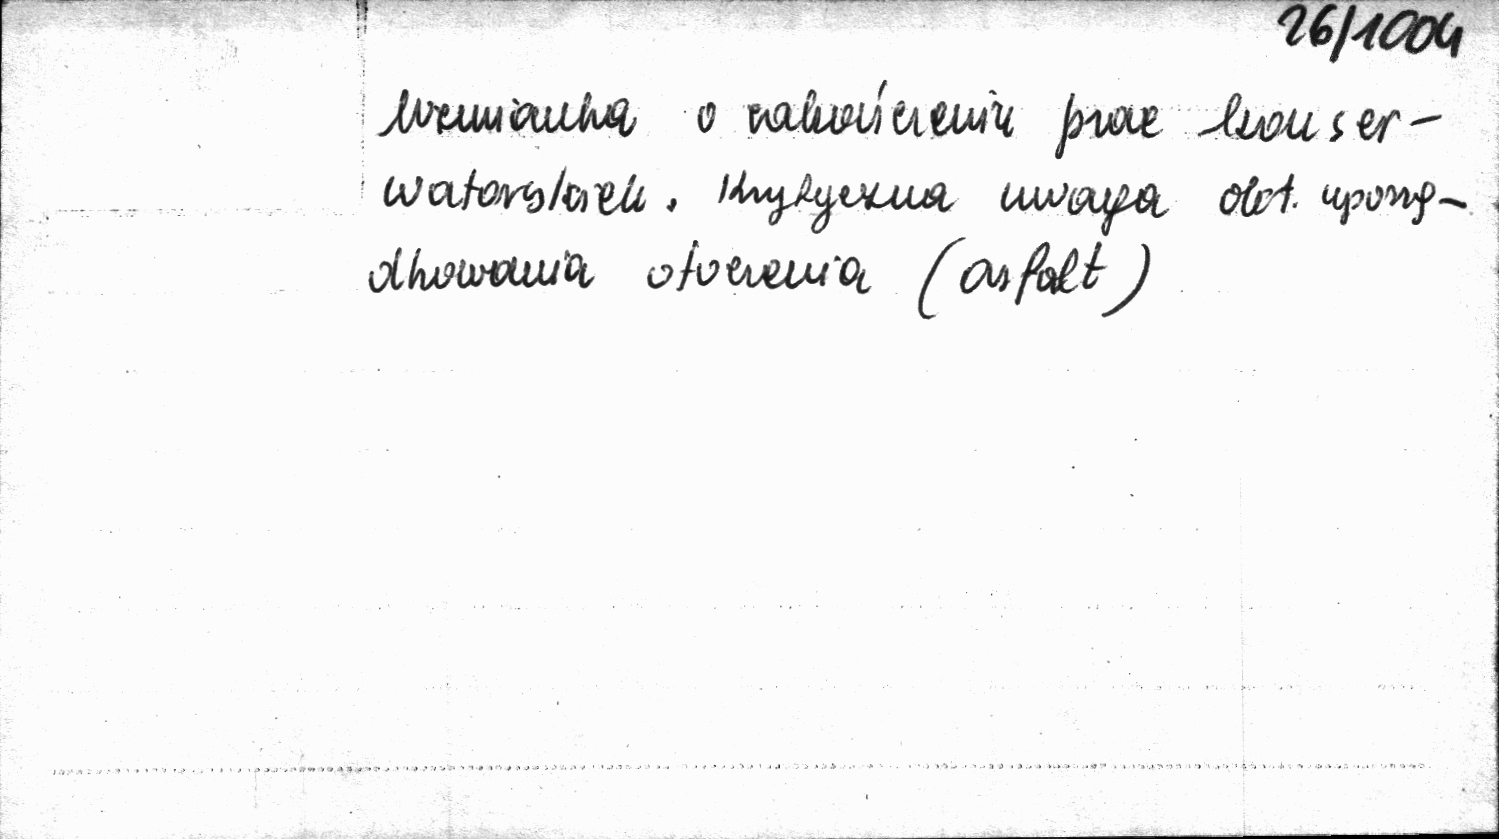 26/1004
Wzmianka o zakończeniu prac konser-
watorskich. Krytyczna uwaga dot. uporzą-
dkowania otoczenia (asfalt)